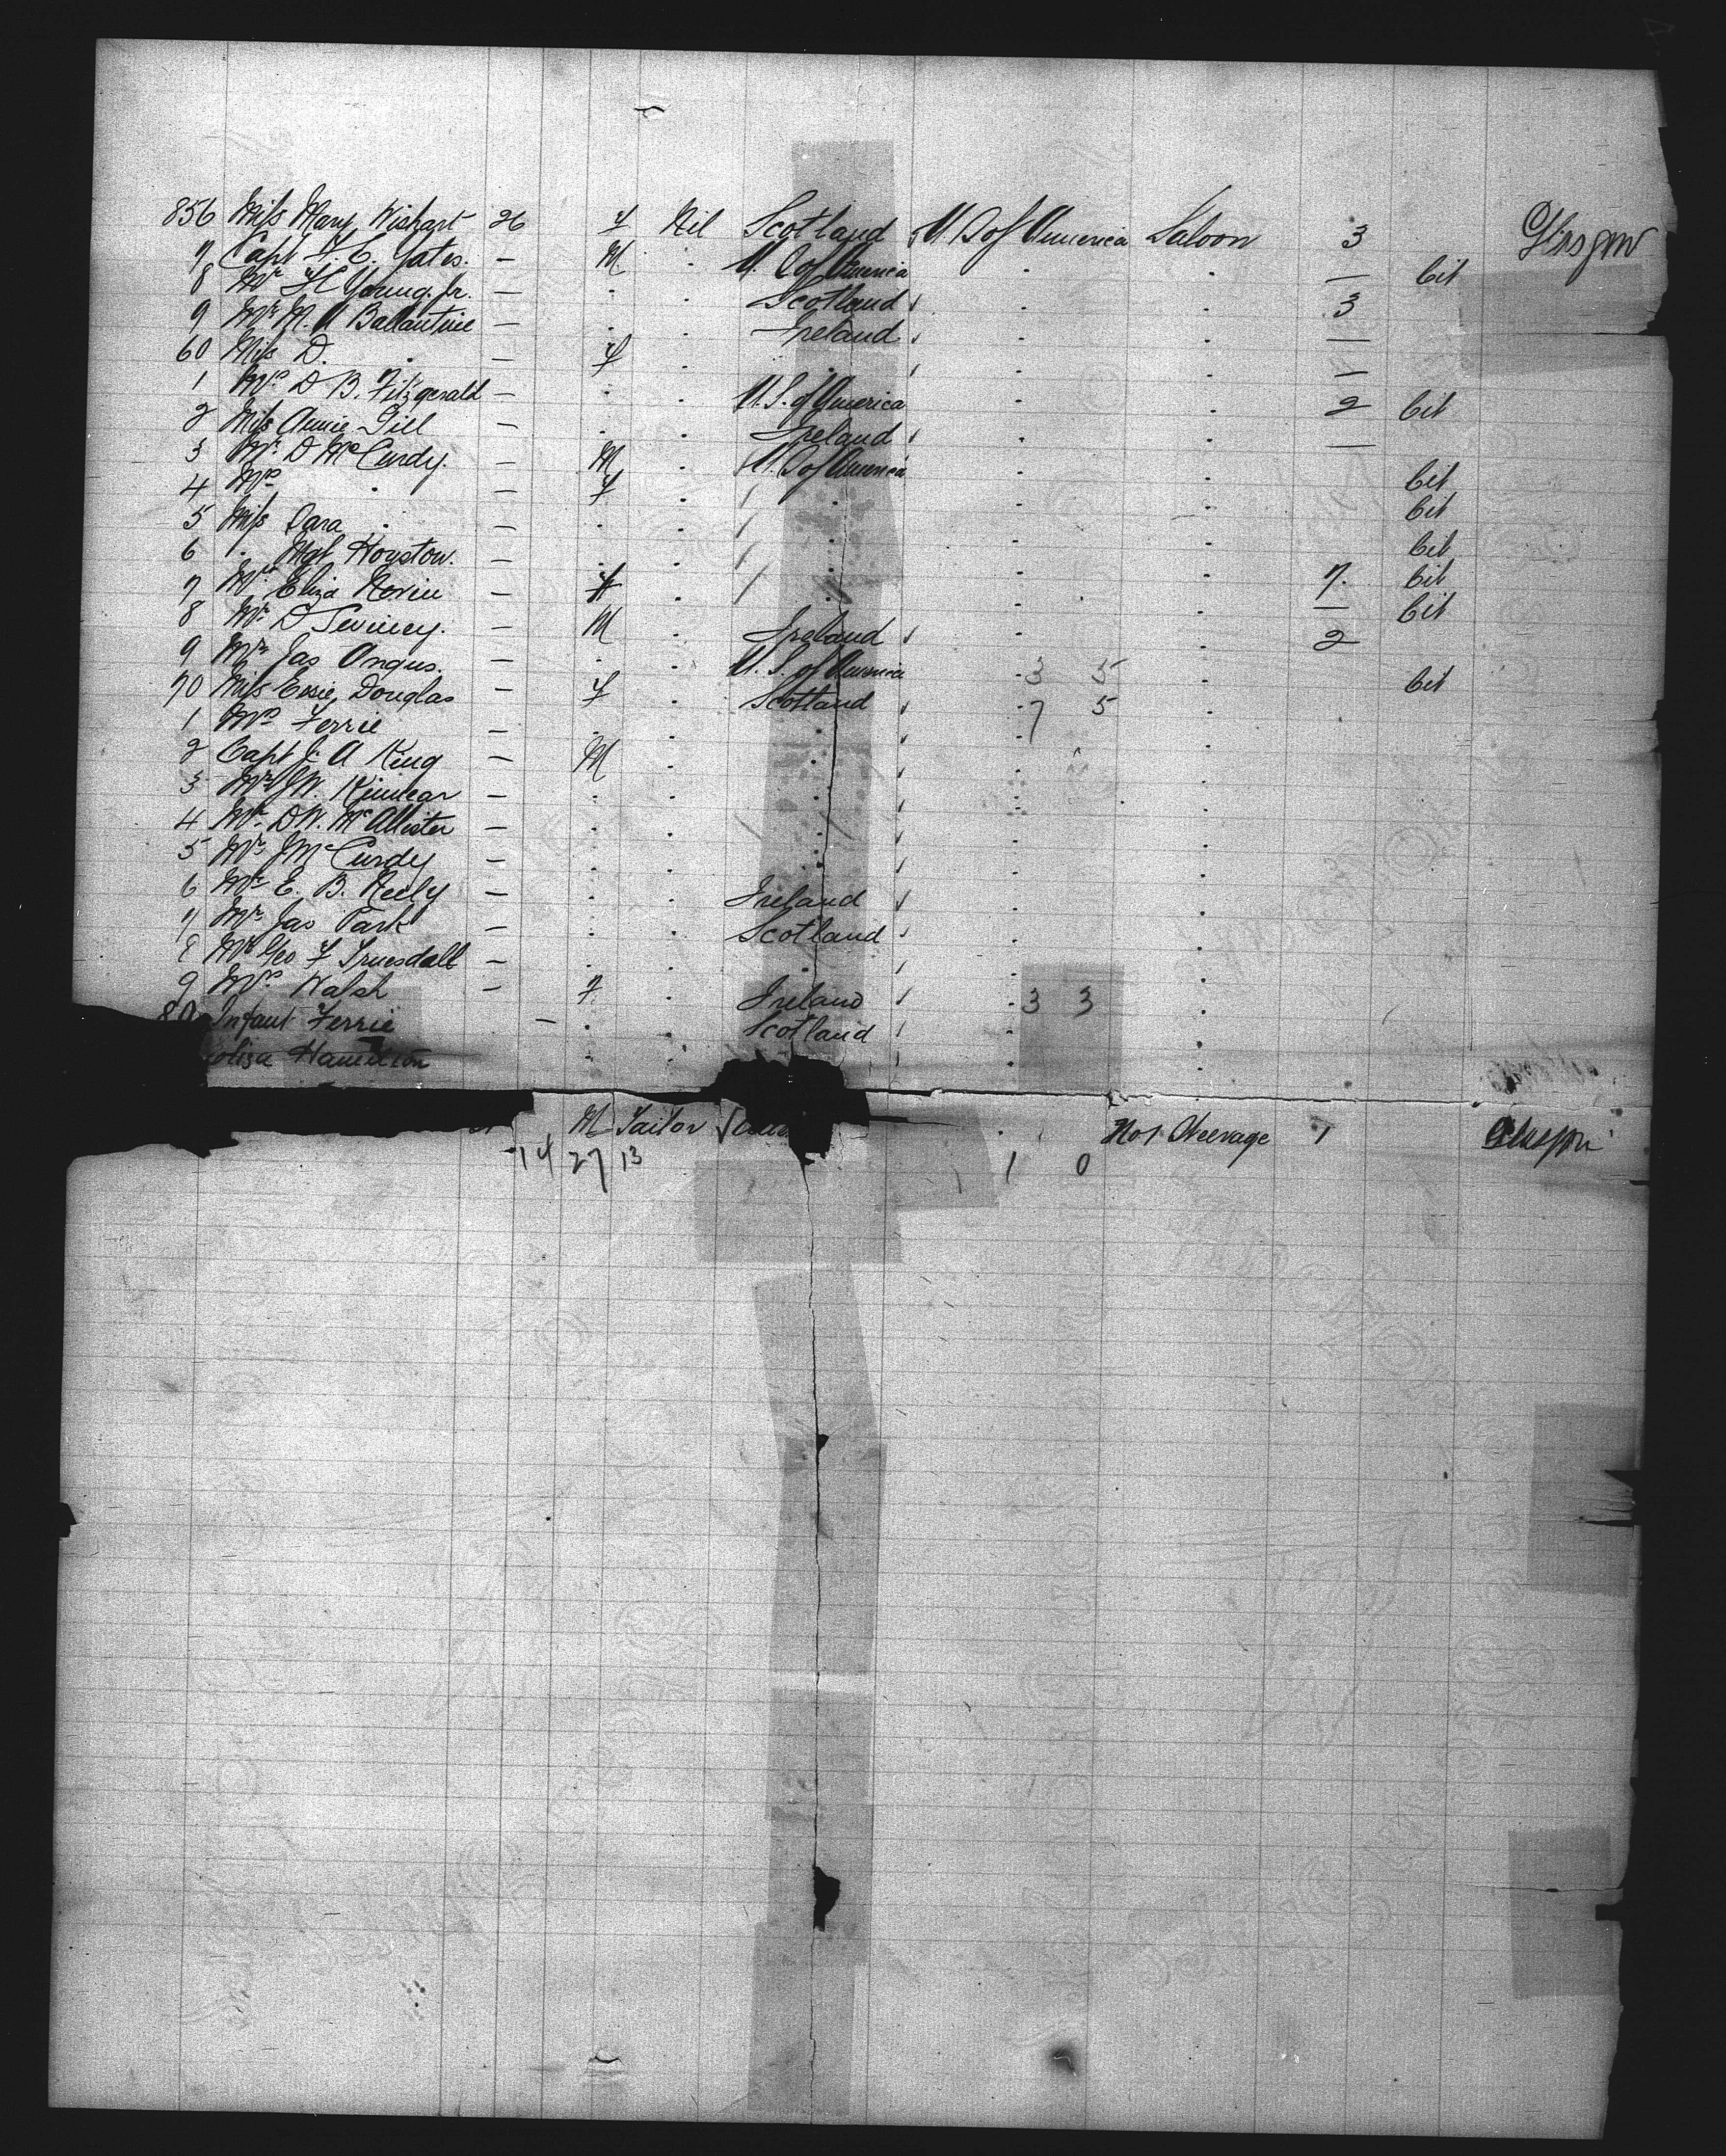 856 Miss Mary Wishart 26 f Nil Scotland U.S of America Saloon 3 Glasgow
7 Capt F. E. Yates. — M. . U.S of America . . — Cit
8 Mr H Young. Jr. — . . Scotland . . 3
9 Mr M. A Ballantine — . . Ireland . . —
60 Miss D. . — f . . . . —
1 Mrs D B. Fitzgerald — . . U.S. of America . . 2 Cit
2 Miss Annie Gill — . . Ireland . . —
3 Mr D McCurdy. — M . U.S of America . . Cit
4 Mrs . — f . . . . Cit
5 Miss Sara . — . . . . . Cit
6 . Mgt Houston. — . . . . . 7. Cit
7 Eliza — f . . . . — Cit
8 Mr D — M . Ireland . . 2
9 Mr Jas Angus. — . . U.S. of America . 3 5 . Cit
70 Miss Essie Douglas — f . Scotland . 7 5 .
1 Mrs Ferrie — . . . . .
2 Capt J. A King — M . . . .
3 Mr J W. Kinnear — . . . . .
4 Mr D W. McAllister — . . . . .
5 Mr J McCurdy — . . . . .
6 Mr E. B. Neely — . . Ireland . .
7 Mr Jas Park — . . Scotland . .
8 Mr Geo F Truesdall — . . . . .
9 Mrs Walsh — f. . Ireland . 3 3 .
80 Infant Ferrie — . . Scotland . .
Hamilton . . . .
M Tailor . . No 1 Steerage 1 Glasgow
14 27 13 1 0